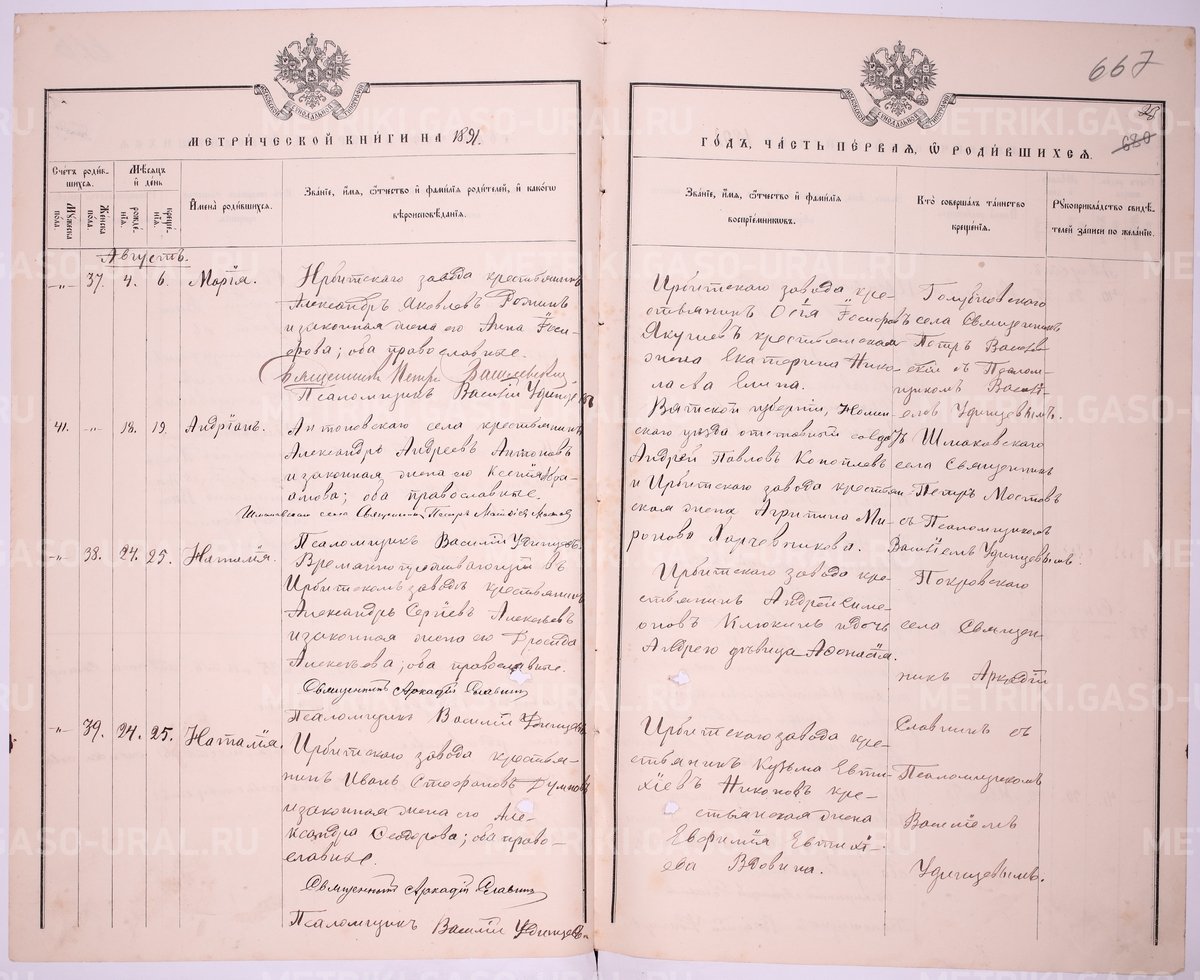 667
28
680
МЕТРИЧЕСКОЙ КНИГИ НА 1891.
ГОДЪ, ЧАСТЬ ПЕРВАЯ, Ѿ РОДИВШИХСЯ.
Счетъ родившихся.
Мужеска пола.
Женска пола.
Мѣсяцъ и день
рожденія.
крещенія.
Имена родившихся.
Званіе, имя, отчество и фамилія родителей, и какого
вѣроисповѣданія.
Званіе, имя, отчество и фамилія
воспріемниковъ.
Кто совершалъ таинство
крещенія.
Рукоприкладство свидѣ-
телей записи по желанію.
Августъ.
-"- 37. 4. 6. Марія.
Ирбитскаго завода крестьянинъ
Александръ Яковлевъ
и законная жена его Анна Іоси-
фова; оба православные.
Священникъ Петръ
Псаломщикъ Василій Удинцевъ
Ирбитскаго завода кре-
стьянинъ Іосифовъ
Якушевъ крестьянская
жена Екатерина Нико-
лаева
Голубковскаго
села Священникъ
Петръ
съ Псалом-
щикомъ Васи-
Удинцевымъ.
41. -"- 18. 19. Андріанъ.
Антоновскаго села крестьянинъ
Александръ Андреевъ Антоновъ
и законная жена его Ксенія Авра-
амова; оба православные.
села Священникъ Петръ
Псаломщикъ Василій Удинцевъ
Вятской губерніи,
скаго уѣзда отставный солдатъ
Андрей Павловъ Копыловъ
и Ирбитскаго завода крестьян-
ская жена Агрипина Ми-
ронова Харчевникова.
Шмаковскаго
села Священникъ
Петръ Мостовъ
съ Псаломщикомъ
Василіемъ Удинцевымъ.
-"- 38. 24. 25. Наталія.
Временнопроживающій въ
Ирбитскомъ заводѣ крестьянинъ
Александръ Сергіевъ Алексѣевъ
и законная жена его
Алексѣева; оба православные.
Священникъ Аркадій Славнинъ
Псаломщикъ Василій Удинцевъ
Ирбитскаго завода кре-
стьянинъ Андрей Симе-
оновъ Клюкинъ и дочь
Андрею дѣвица Афонасія.
Покровскаго
села Священ-
никъ Аркадій
Славнинъ съ
Псаломщикомъ
Василіемъ
Удинцевымъ.
-"- 39. 24. 25. Наталія.
Ирбитскаго завода крестья-
нинъ Иванъ Стефановъ
и законная жена его Але-
ксандра Ѳеодорова; оба право-
славные.
Священникъ Аркадій Славнинъ
Псаломщикъ Василій Удинцевъ
Ирбитскаго завода кре-
стьянинъ Кузьма Евти-
хіевъ Никоновъ кре-
стьянская жена
Евфимія Евтихі-
ева Вдовина.
METRIKI.GASO-URAL.RU